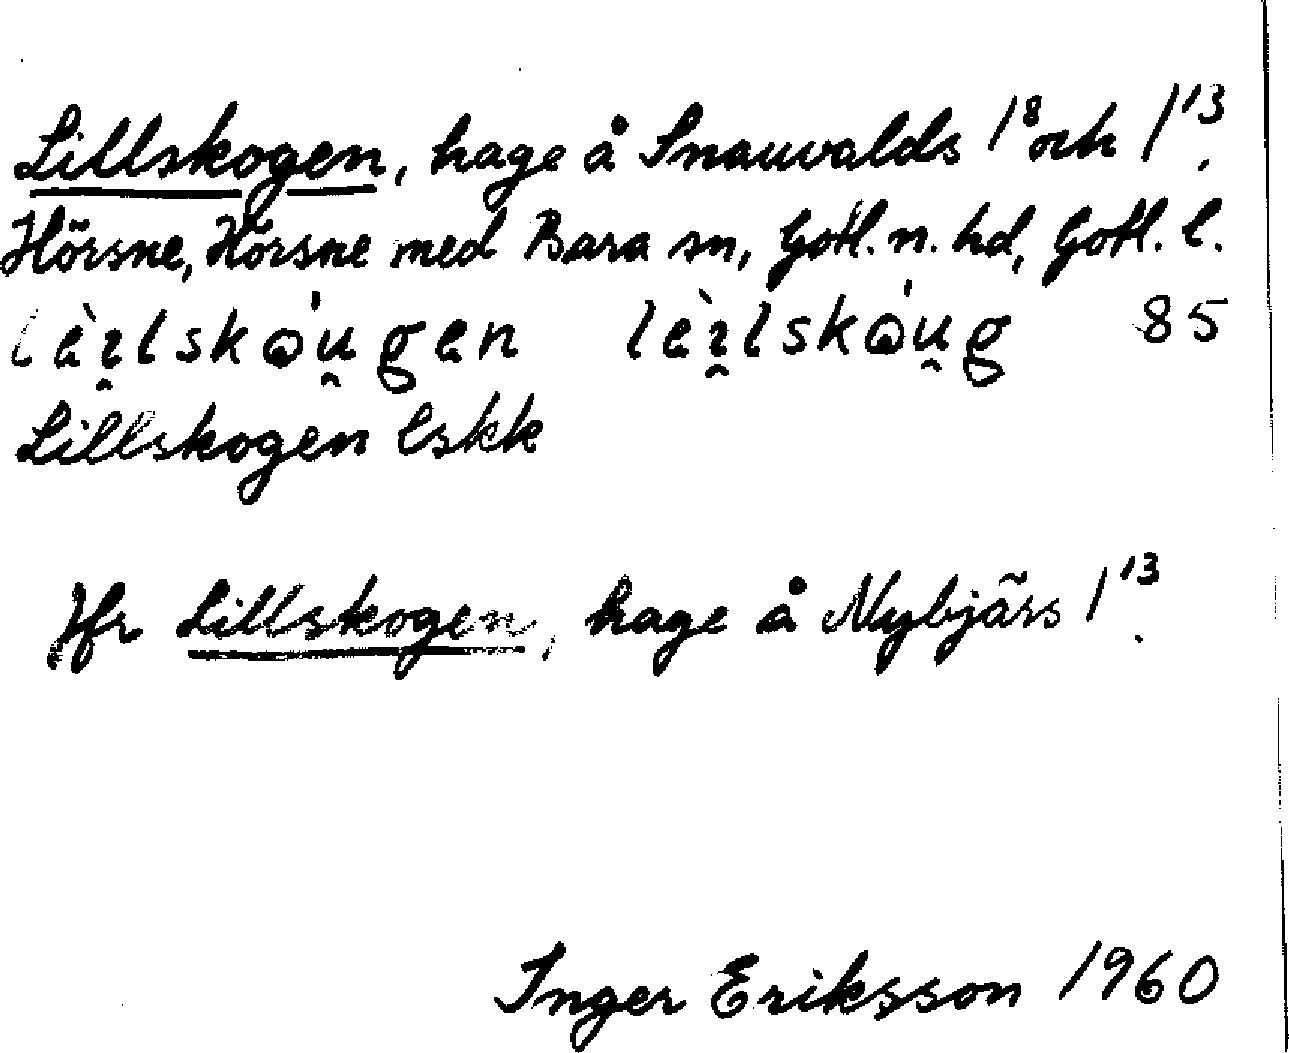 Lillskogen, hage å Snauvalds 1⁸ och 1¹³.
Hörsne, Hörsne med Bara sn, Gotl. n. hd, Gotl. l.
85
Lillskogen lskk
Jfr Lillskogen, hage å Nybjärs 1¹³.
Inger Eriksson 1960